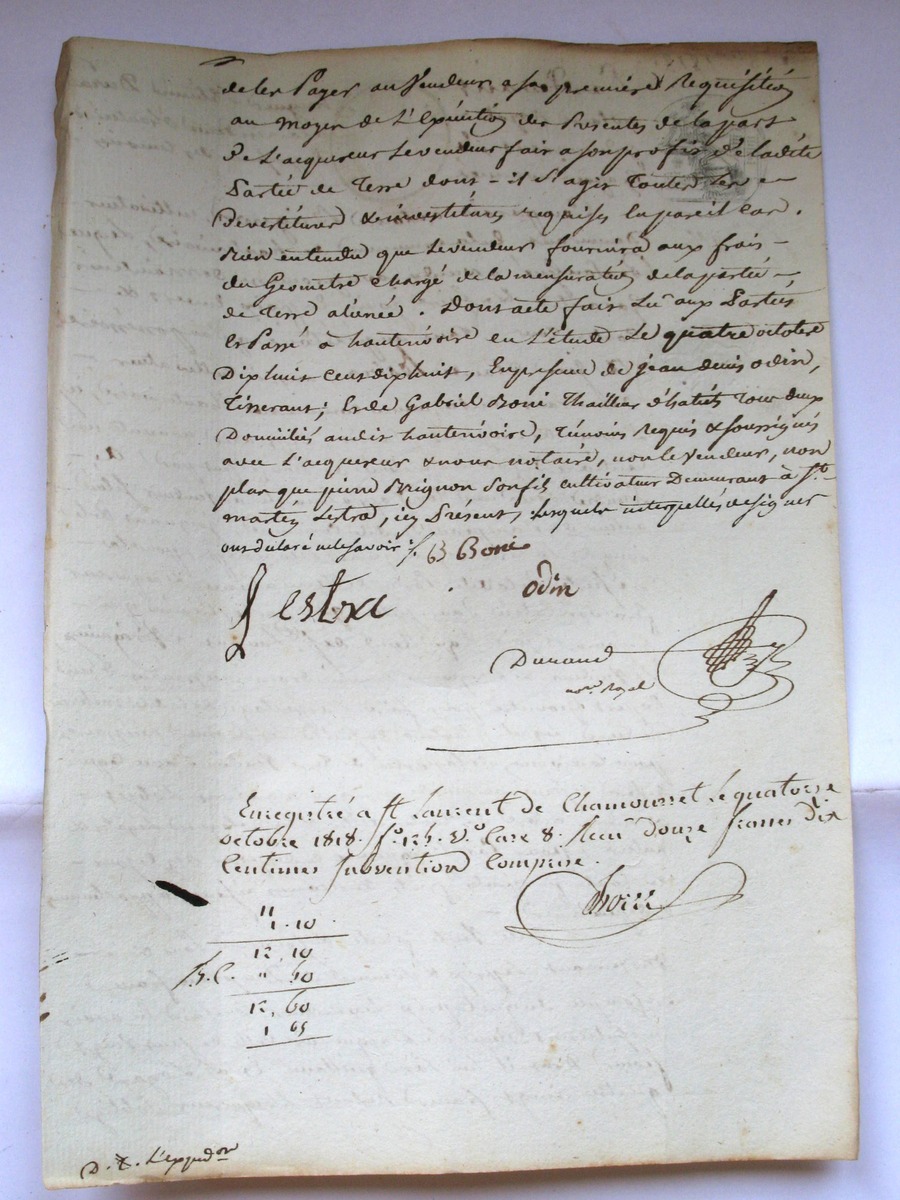 de les Payer au Vendeur a sa premiere Requisition
au moyen de L'Exécution des Presentes de la part
De L'acquereur Le vendeur fait a son profit de ladite
Partie de Terre dont - il S'agit Toutes Les -
Devestitures & investitures requises En pareil Cas.
Bien entendu que Le vendeur fournira aux frais -
du Geometre Chargé de la mensuration de la partie -
de Terre aliénée. Dont acte fait Lu aux Parties
Et Passé à hauterivoire en L'étude Le quatre octobre
Dix huit Cent dix huit, En presence de jean denis odin,
Tisserant; Et de Gabriel Boni Thailleur d'habits Tous deux
Domiciliés audit hauterivoire, Témoins Requis & soussignés
avec L'acquereur & nous notaire, non le Vendeur, non
plus que pierre Brignon Son fils cultivateur Demeurant à St
martin Lestra, icy Présent, Lesquels interpellés de signer
ont déclaré ne le savoir ./. B Boni
Lestra odin
Durand
nore Royal
Enregistré a St Laurent de Chamousset Le quatorze
octobre 1818. fo. 125. Vo Case 8. Recu douze francs dix
Centimes Subvention Comprise.
11
1.10
12,10
" 50
12,60
1 65
L'expedon